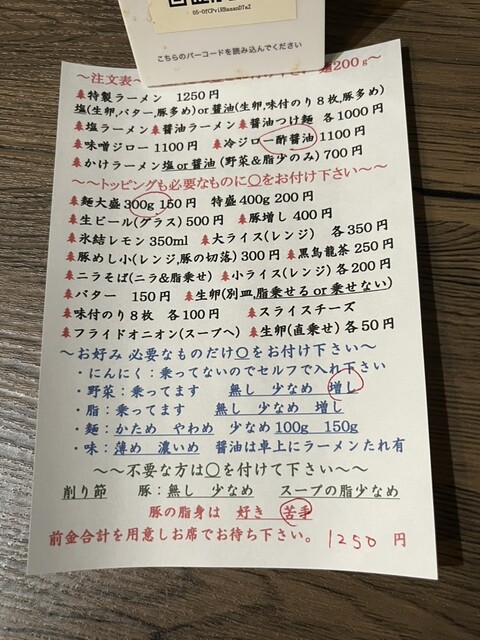 05-0fCPviRBasaoDTa2
こちらのバーコードを読み込んでください
～注文表～ 麺200g～
特製ラーメン 1250円
塩(生卵,バター,豚多め)or醤油(生卵,味付のり8枚,豚多め)
塩ラーメン 醤油ラーメン 醤油つけ麺 各1000円
味噌ジロー1100円 冷ジロー酢醤油1100円
かけラーメン塩or醤油(野菜&脂少のみ)700円
～～トッピングも必要なものに〇をお付け下さい～～
麺大盛300g 150円 特盛400g 200円
生ビール(グラス)500円 豚増し 400円
氷結レモン350ml 大ライス(レンジ) 各350円
豚めし小(レンジ,豚の切落)300円 黒烏龍茶 250円
ニラそば(ニラ&脂乗せ) 小ライス(レンジ)各200円
バター 150円 生卵(別皿,脂乗せるor乗せない)
味付のり8枚 各100円 スライスチーズ
フライドオニオン(スープへ) 生卵(直乗せ)各50円
～お好み 必要なものだけ〇をお付け下さい～
・にんにく：乗ってないのでセルフで入れ下さい
・野菜：乗ってます 無し 少なめ 増し
・脂：乗ってます 無し 少なめ 増し
・麺：かため やわめ 少なめ100g 150g
・味：薄め 濃いめ 醤油は卓上にラーメンたれ有
～～不要な方は〇を付けて下さい～～
削り節 豚：無し 少なめ スープの脂少なめ
豚の脂身は 好き 苦手
前金合計を用意しお席でお待ち下さい。1250 円